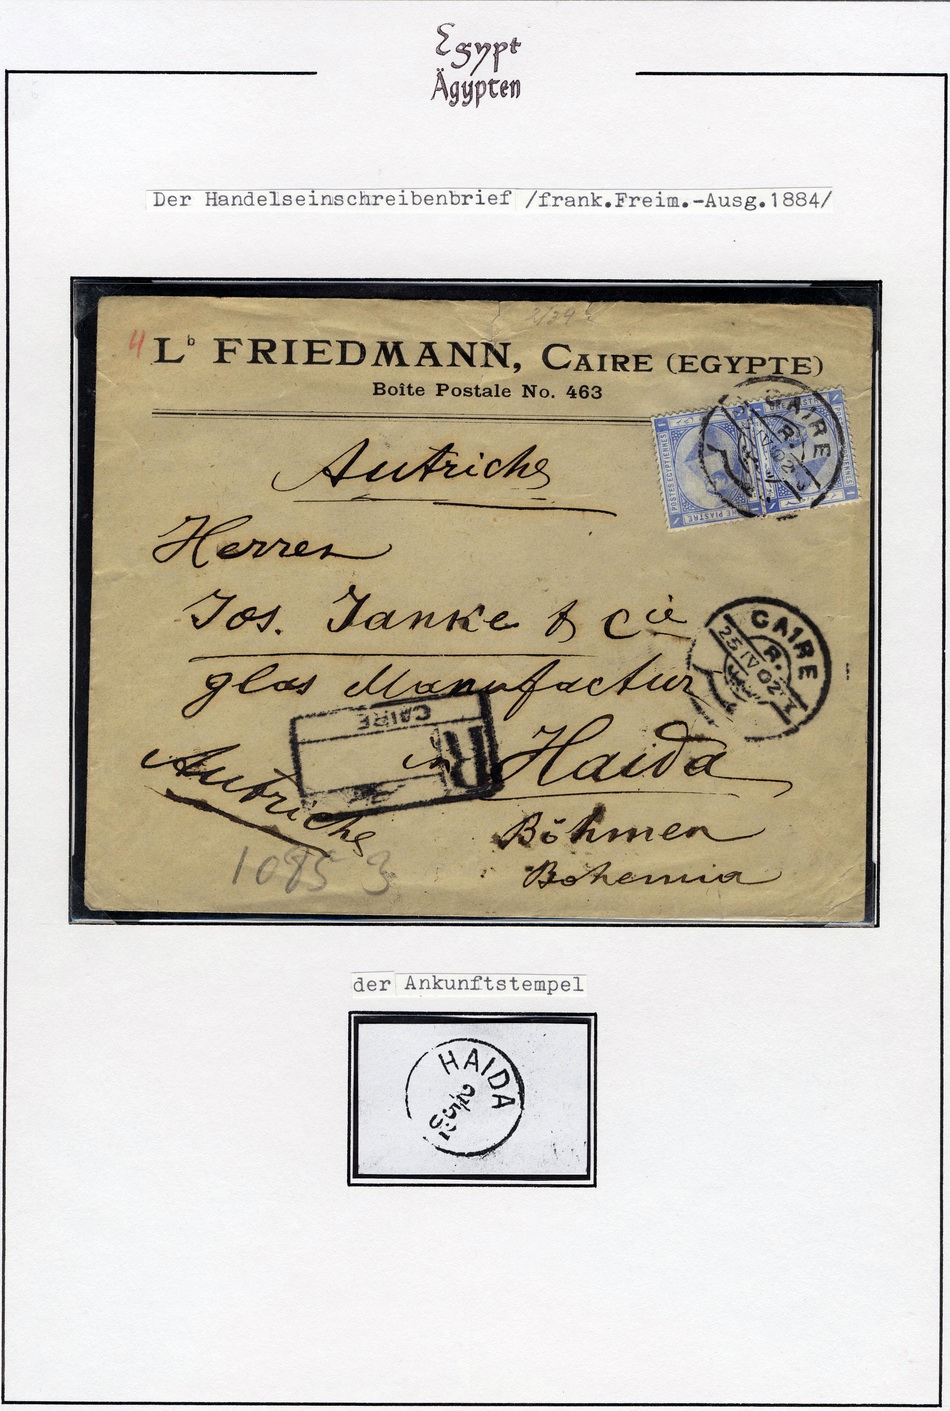 Egypt
Ägypten
Der Handelseinschreibenbrief /frank.Freim.-Ausg.1884/
4
Lb FRIEDMANN, CAIRE (EGYPTE)
Boîte Postale No. 463
CAIRE
R.
POSTES EGYPTIENNES
PIASTRE
Autriche
Herren
Jos. Janke & Cie
CAIRE
R.
25 IV 02
glas Manufactur
CAIRE
R
in Haida
Autriche
Böhmen
Bohemia
1085 3
der Ankunftstempel
HAIDA